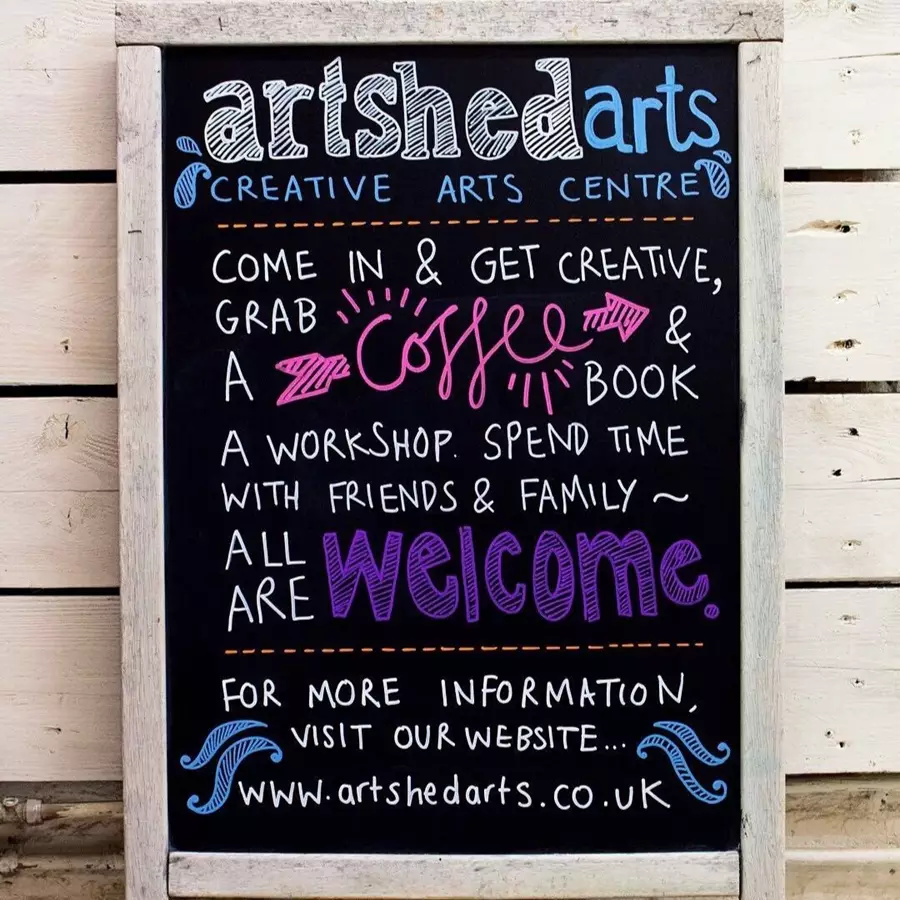 artshedarts
CREATIVE ARTS CENTRE
COME IN & GET CREATIVE,
GRAB
A Coffee & BOOK
A WORKSHOP. SPEND TIME
WITH FRIENDS & FAMILY ~
ALL
ARE welcome.
FOR MORE INFORMATION,
VISIT OUR WEBSITE...
www.artshedarts.co.uk